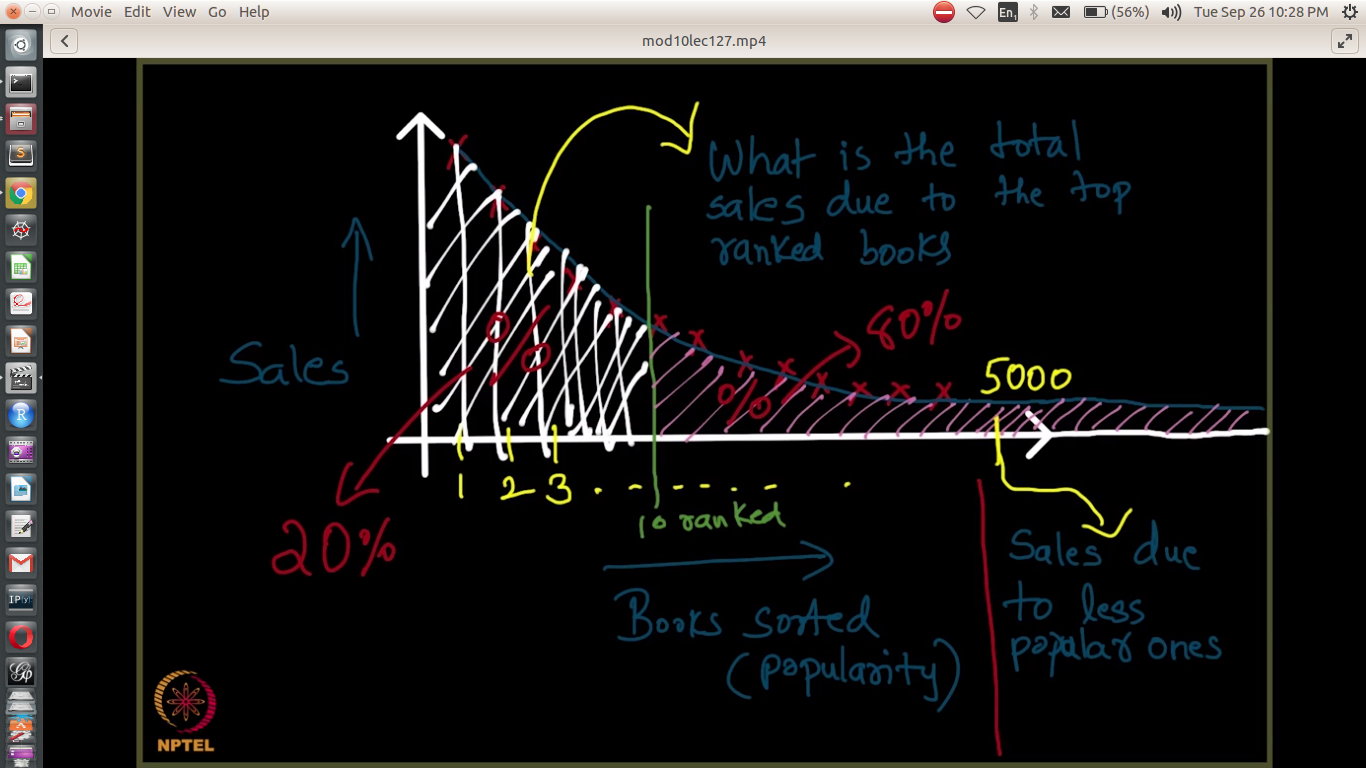 Movie Edit View Go Help
En1
(56%)
Tue Sep 26 10:28 PM
mod10lec127.mp4
What is the total
sales due to the top
ranked books
Sales
%
80%
%
5000
1 2 3
10 ranked
20%
Books sorted
(popularity)
Sales due
to less
popular ones
NPTEL
IP[y]: